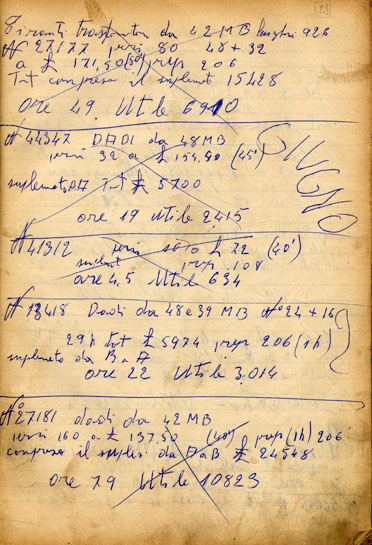 13
Tiranti trasformton da 42 MB lunghi 926
N° 27177 pezzi 80 48 + 32
a £ 171,50 (50') prep 206
Tot compreso il suplemet 15428
Ore 49. Utile 6910
GIUGNO
N° 44347 DADI da 48MB
pezzi 32 a £ 154.50 (45')
suplemeto Tot £ 5700
ore 19 Utile 2415
N° 41912 pezzi £ 72 (40')
prep. 108
ore 4,5 Utile 634
N° 13418 Dadi da 48 e 39 MB N° 24 + 16
29h tot £ 5974 prep 206 (1h)
suplemeto da B a A
ore 22 Utile 3.014
N° 27181 dadi da 42 MB
pezzi 160 a £ 137.50 (40') prep (1h) 206
compreso il suplem da A a B £ 24548
Ore 79 Utile 10823